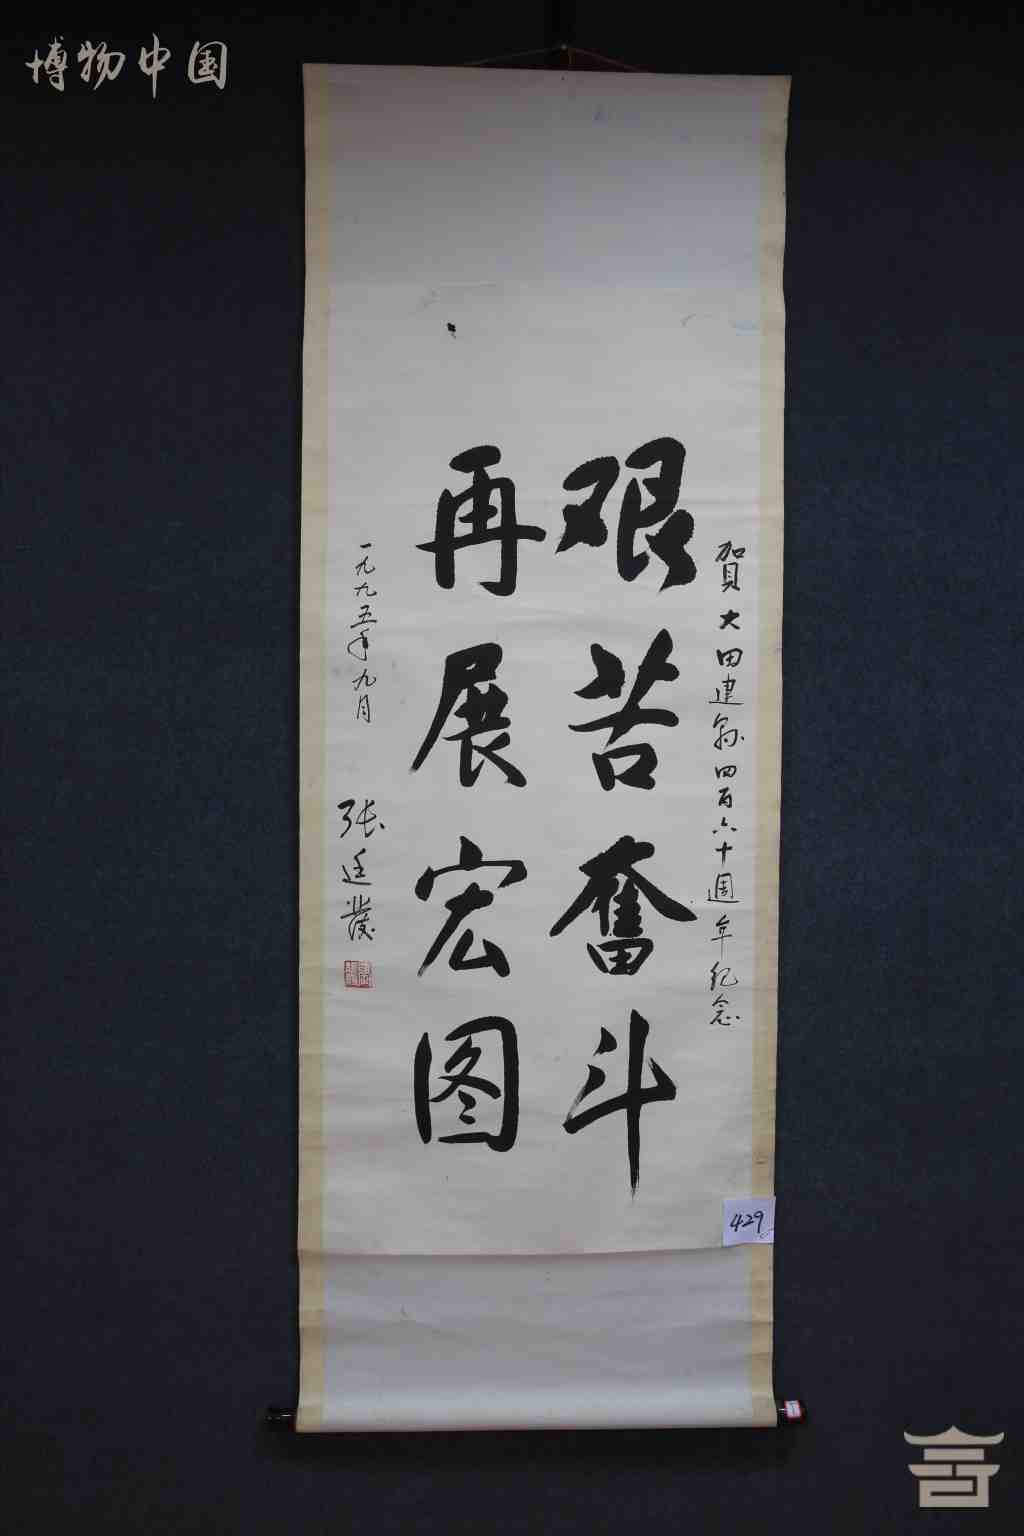 博物中国
賀大田建县四百六十週年纪念
艰苦奋斗
再展宏图
一九九五年九月
张廷發
429